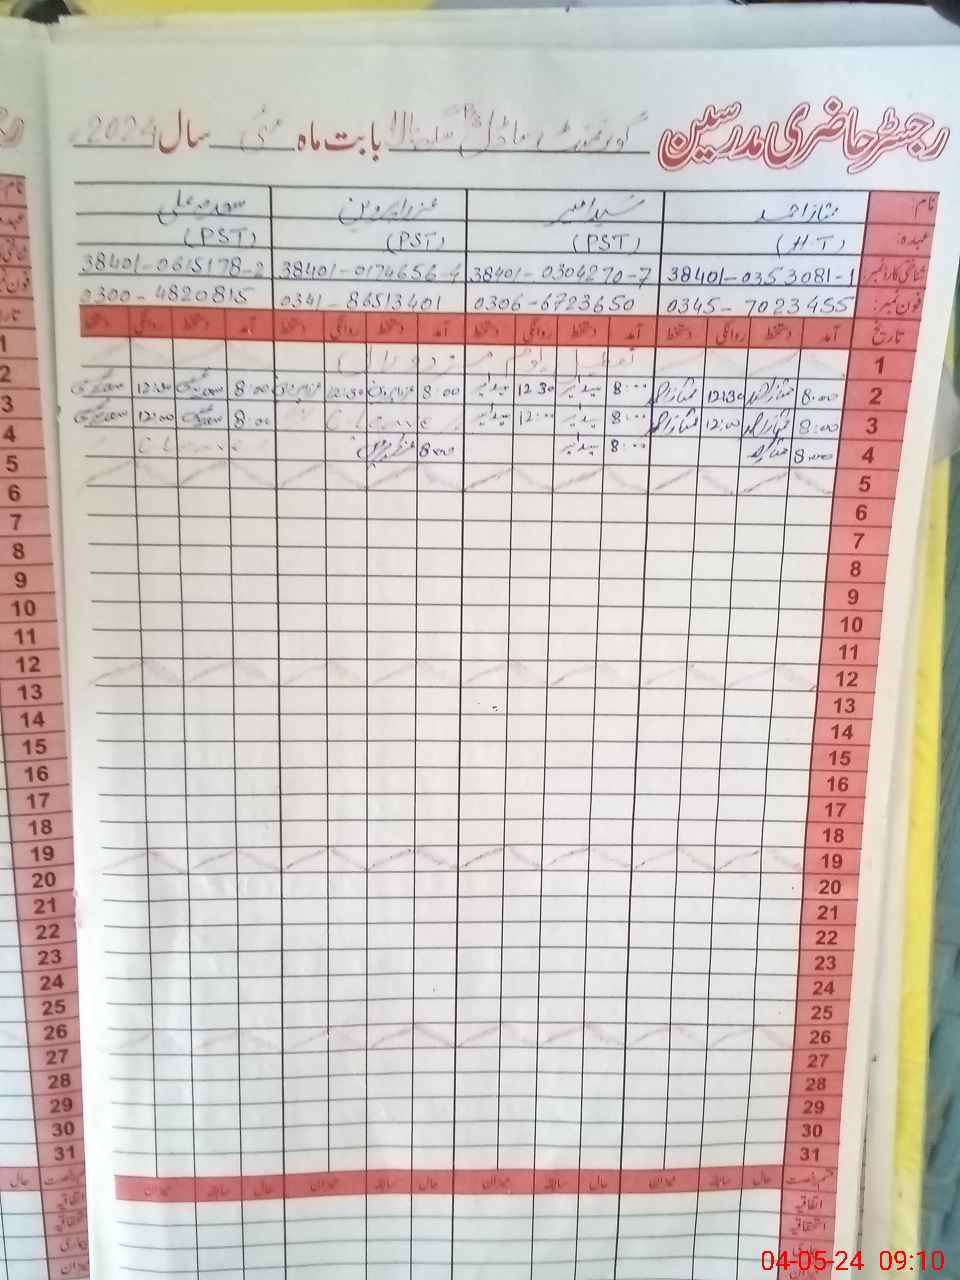 رجسٹر حاضری مدرسین گورنمنٹ ماڈل P/S بابت ماہ مئی سال 2024ء
نام: ممتاز احمد
عہدہ: (H.T) (PST) (PST) (PST)
شناختی کارڈ نمبر: 38401-0353081-1 38401-0304270-7 38401-0174656-4 38401-0615178-2
فون نمبر: 0345-7023455 0306-6723650 0341-86513401 0300-4820815
تاریخ آمد دستخط روانگی دستخط آمد دستخط روانگی دستخط آمد دستخط روانگی دستخط آمد دستخط روانگی دستخط
1 تعطیل یوم مزدوراں
2 8:00 12:30 8:00 12:30 8:00 12:30 8:00 12:30
3 8:00 12:00 8:00 12:00 C Leave 8:00 12:00
4 8:00 8:00 8:00 C Leave
5
6
7
8
9
10
11
12
13
14
15
16
17
18
19
20
21
22
23
24
25
26
27
28
29
30
31
قسم رخصت حال سابقہ میزان حال سابقہ میزان حال سابقہ میزان حال سابقہ میزان
اتفاقیہ
استحقاقیہ
بیماری
میزان
04-05-24 09:10